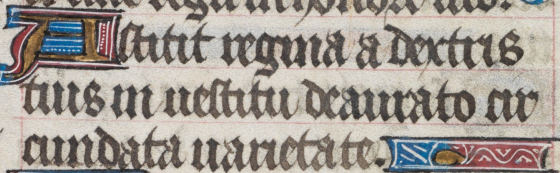 Astitit regina a dextris
tuis in uestitu deaurato cir
cundata uarietate.